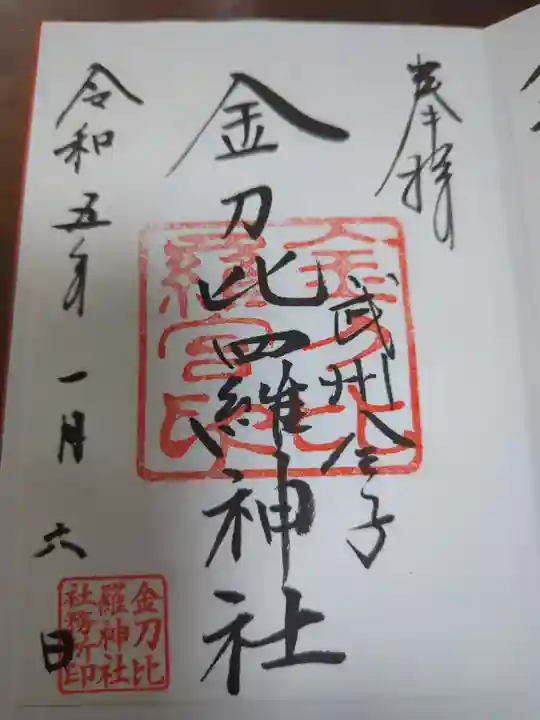 奉拝
武州金子
金刀比羅神社
令和五年一月六日
金刀比
羅神社
社務所印